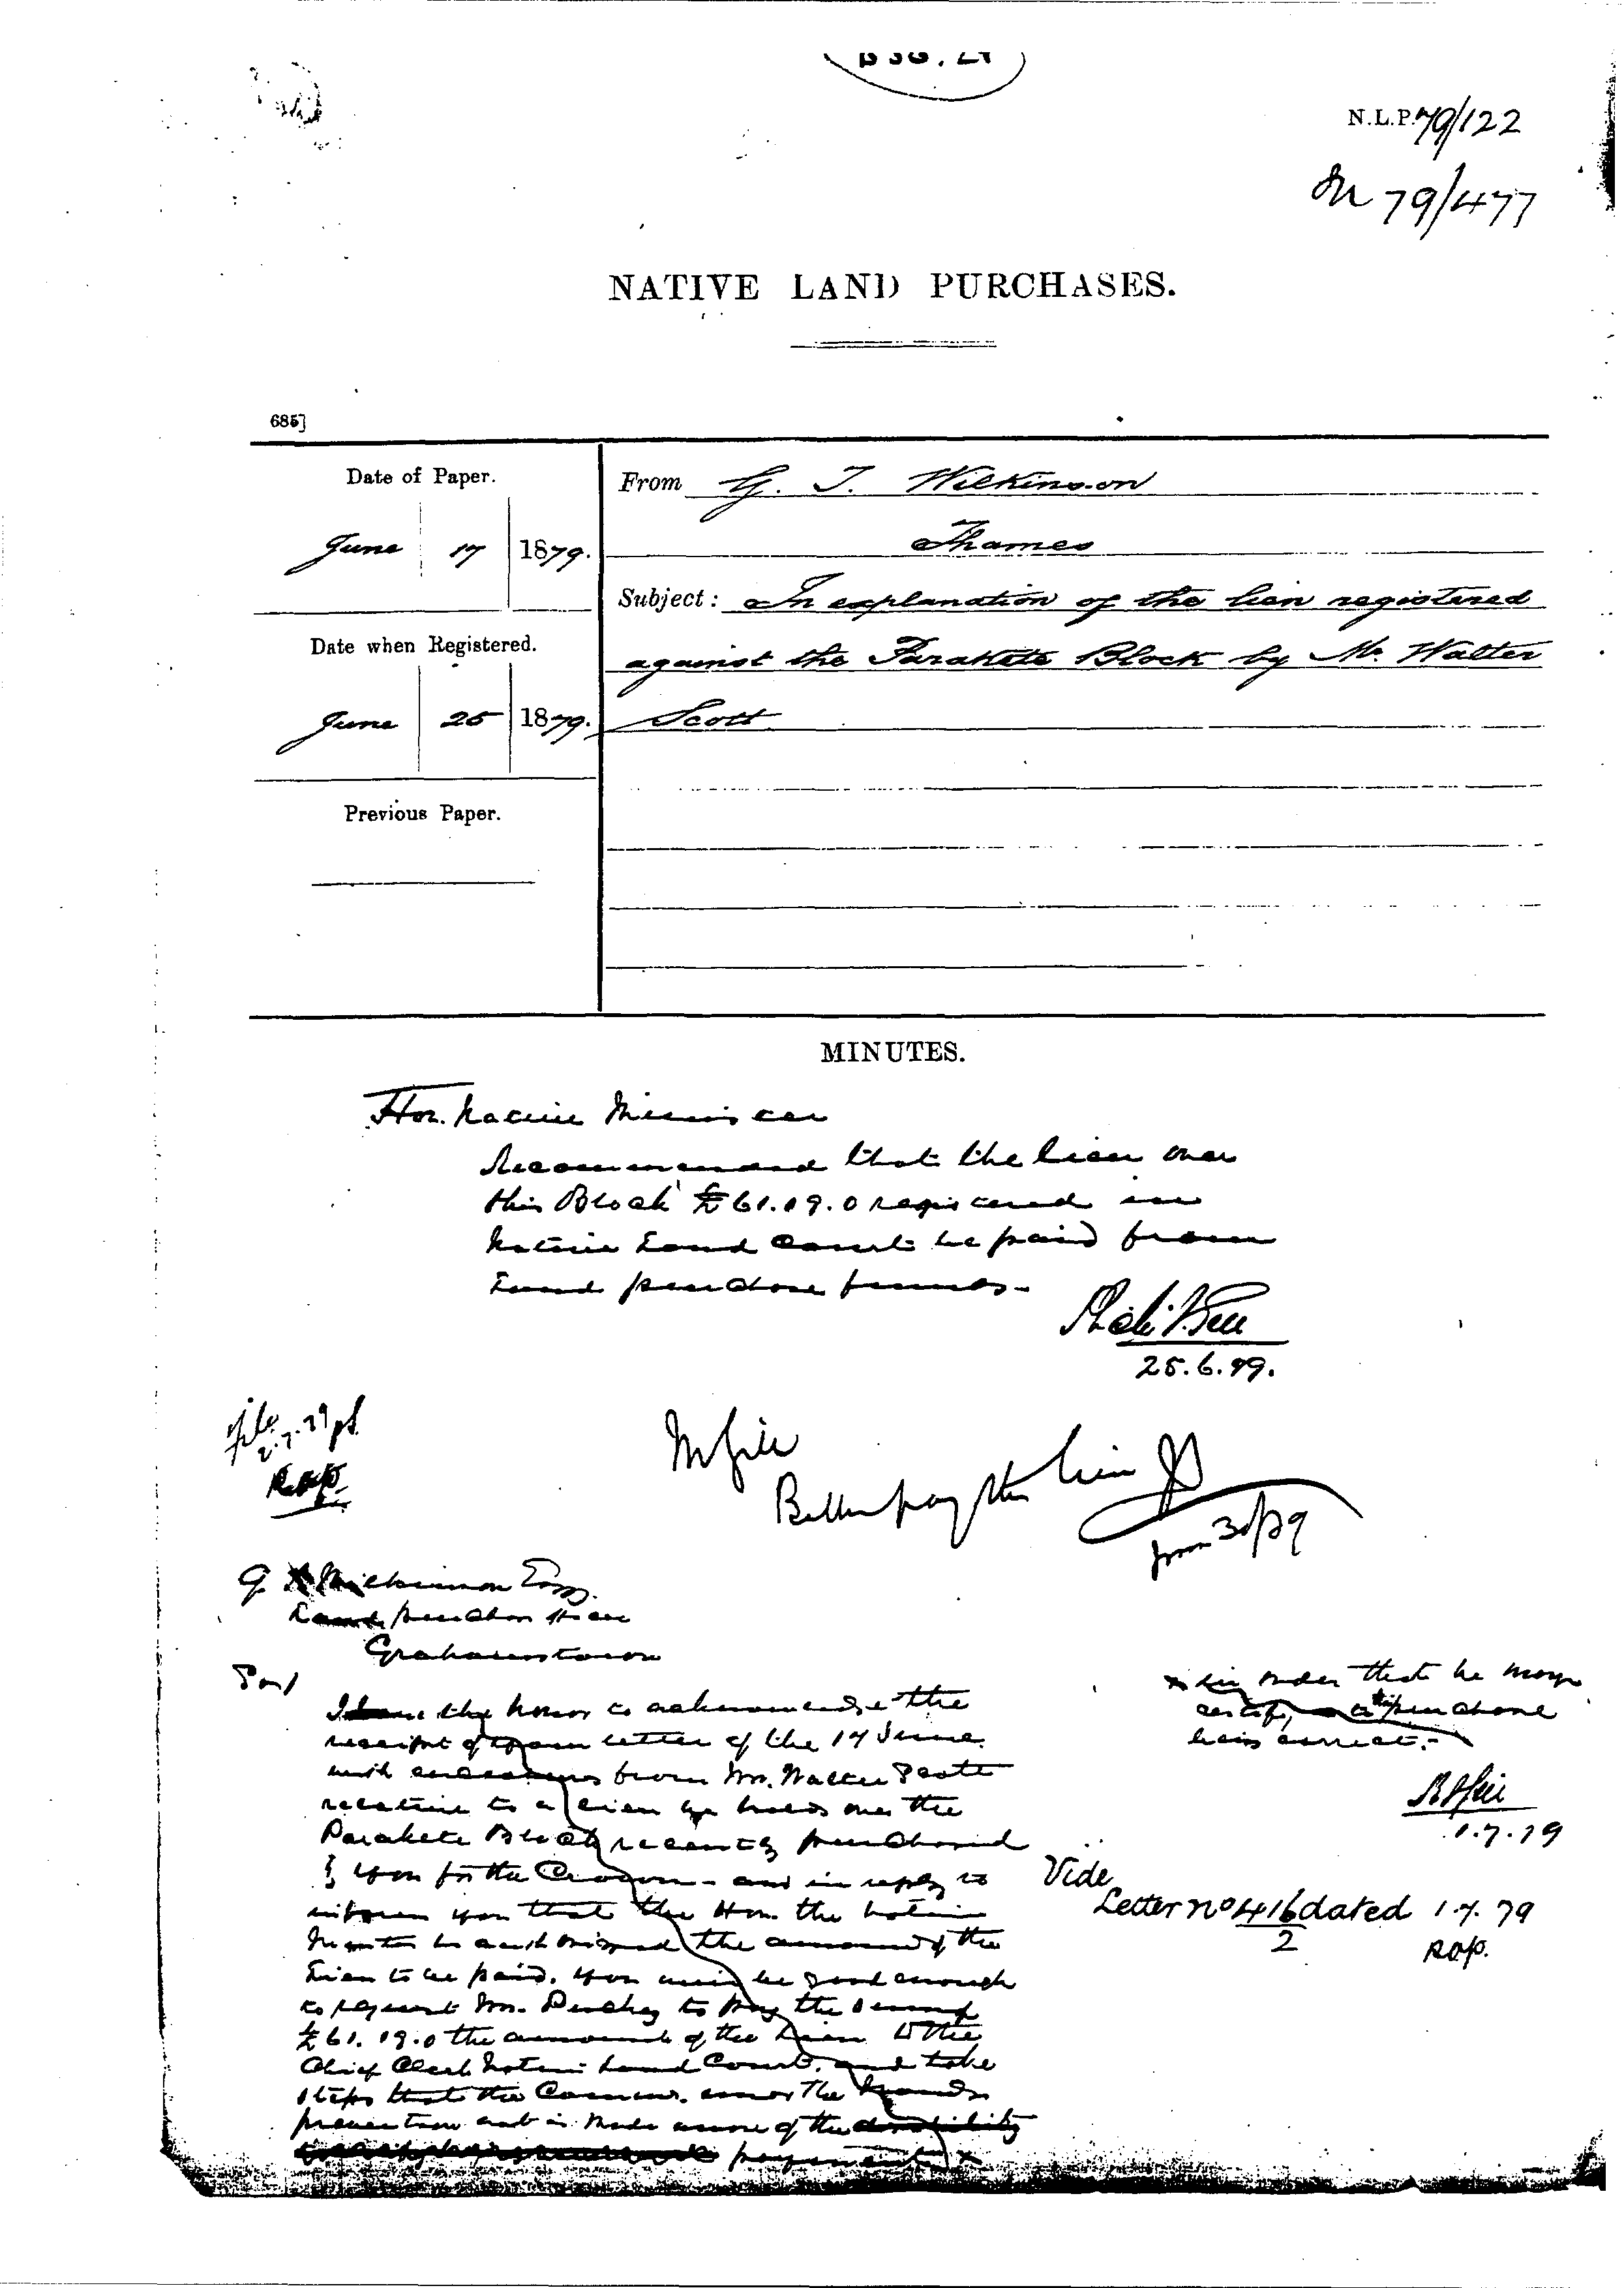 N.L.P. 79/122
79/477
NATIVE LAND PURCHASES.
685]
Date of Paper.
June 17 1879.
From G. T. Wilkinson
Thames
Subject: In explanation of the lien registered
against the Parakete Block by Mr. Walter
Scott
Date when Registered.
June 25 1879.
Previous Paper.
MINUTES.
Hon. Native Minister
Recommend that the lien over
this Block £61.19.0 registered in
Native Land Court be paid from
Land purchase funds.
25.6.79.
File
2.7.79
Mr Gill
Better pay the lien
30/79
G T Wilkinson Esq.
Land purchase
Grahamstown
I have the honor to acknowledge the
receipt of your letter of the 17 June
with enclosures from Mr. Walter Scott
relative to a lien he holds over the
Parakete Block recently purchased
by you for the Crown - and in reply to
inform you that the Hon. the Native
Minister has authorised the amount of the
Lien to be paid. You will be good enough
to request Mr. to pay the
£61.19.0 the amount of the Lien to the
Chief Clerk Native Land Court. and take
steps that the the
is made aware of the
payment x
x in order that he may
certify to the purchase
being correct.-
1.7.79
Vide
Letter no 416/2 dated 1.7.79